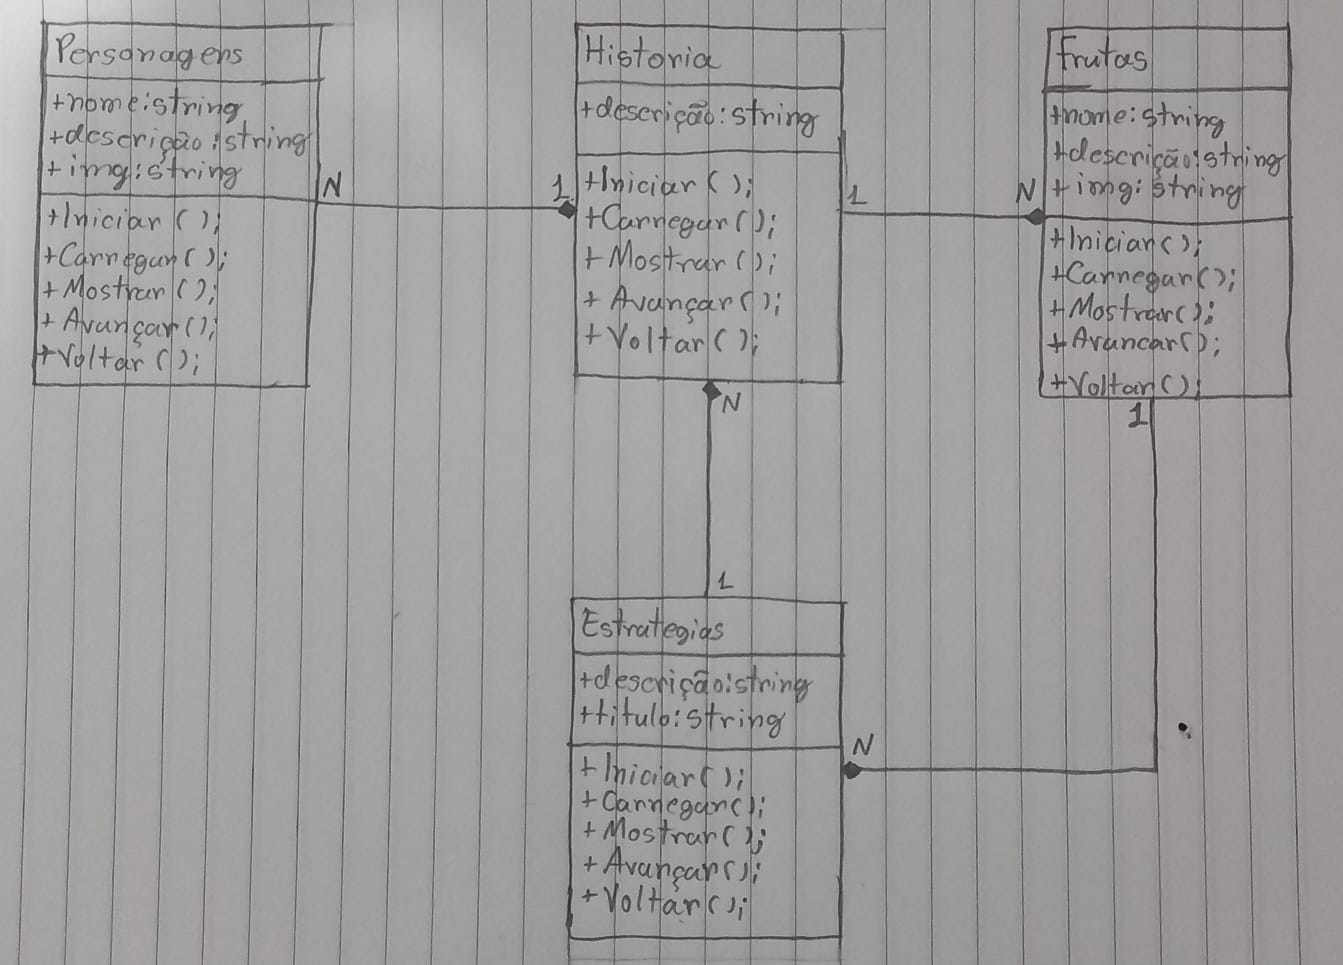 Personagens
+nome:string
+descrição:string
+img:string
+Iniciar();
+Carregar();
+Mostrar();
+Avançar();
+Voltar();
N
1
Historia
+descrição:string
+Iniciar();
+Carregar();
+Mostrar();
+Avançar();
+Voltar();
1
N
Frutas
+nome:string
+descrição:string
+img:string
+Iniciar();
+Carregar();
+Mostrar();
+Avancar();
+Voltar();
N
1
1
N
Estrategias
+descrição:string
+titulo:string
+Iniciar();
+Carregar();
+Mostrar();
+Avançar();
+Voltar();